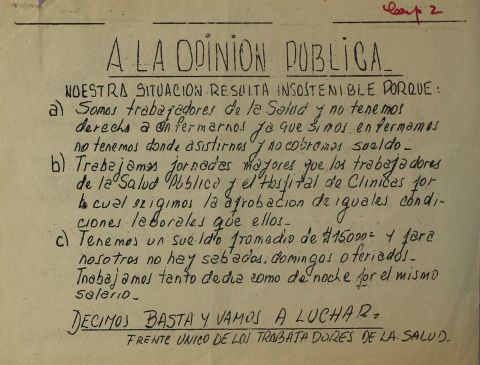 Carp 2
A LA OPINION PUBLICA_
NUESTRA SITUACION RESULTA INSOSTENIBLE PORQUE:
a) Somos trabajadores de la Salud y no tenemos
derecho a enfermarnos ya que si nos enfermamos
no tenemos donde asistirnos y no cobramos sueldo_
b) Trabajamos jornadas mayores que los trabajadores
de la Salud Publica y el Hospital de Clinicas por
lo cual exigimos la aprobacion de iguales condi-
ciones laborales que ellos_
c) Tenemos un sueldo promedio de $15000= y para
nosotros no hay sabados, domingos o feriados_
Trabajamos tanto de dia como de noche por el mismo
salario_
DECIMOS BASTA Y VAMOS A LUCHAR=
FRENTE UNICO DE LOS TRABAJADORES DE LA SALUD_